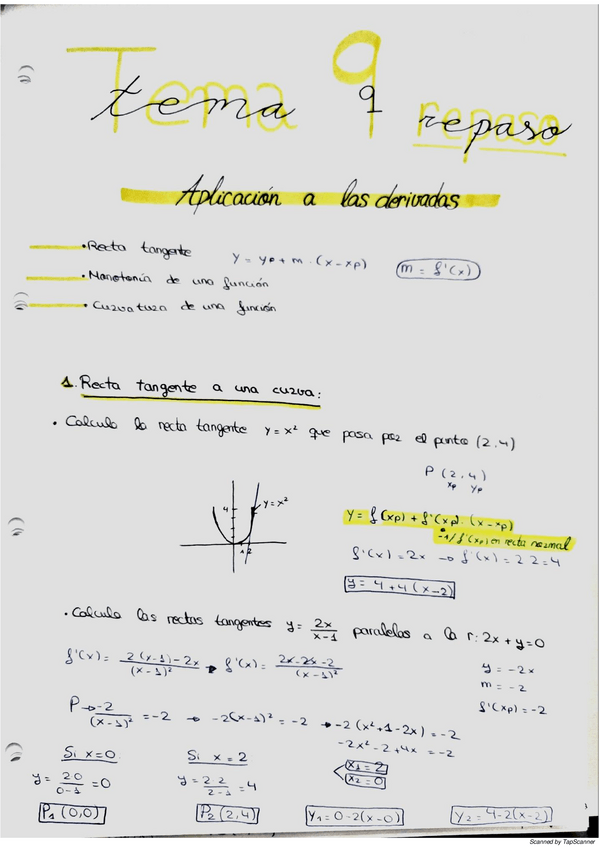 Tema 9 repaso
tema 9 repaso
Aplicación a las derivadas
• Recta tangente y = yp + m · (x - xp) m = f'(x)
• Monotonía de una función
• Curvatura de una función
1. Recta tangente a una curva:
• Calcula la recta tangente y = x² que pasa por el punto (2,4)
P (2,4)
xp yp
4 y = x²
1 2
y = f(xp) + f'(xp) · (x - xp)
-1/f'(xp) en recta normal
f'(x) = 2x → f'(x) = 2·2 = 4
y = 4 + 4(x-2)
• Calcula las rectas tangentes y = 2x/(x-1) paralelas a la r: 2x + y = 0
f'(x) = (2(x-1) - 2x)/(x-1)² → f'(x) = (2x - 2x - 2)/(x-1)²
y = -2x
m = -2
f'(xp) = -2
P → -2/(x-1)² = -2 → -2(x-1)² = -2 → -2(x² + 1 - 2x) = -2
-2x² - 2 + 4x = -2
x₁ = 2
x₂ = 0
Si x = 0 Si x = 2
y = 2·0/(0-1) = 0 y = 2·2/(2-1) = 4
P₁ (0,0) P₂ (2,4) y₁ = 0 - 2(x-0) y₂ = 4 - 2(x-2)
Scanned by TapScanner